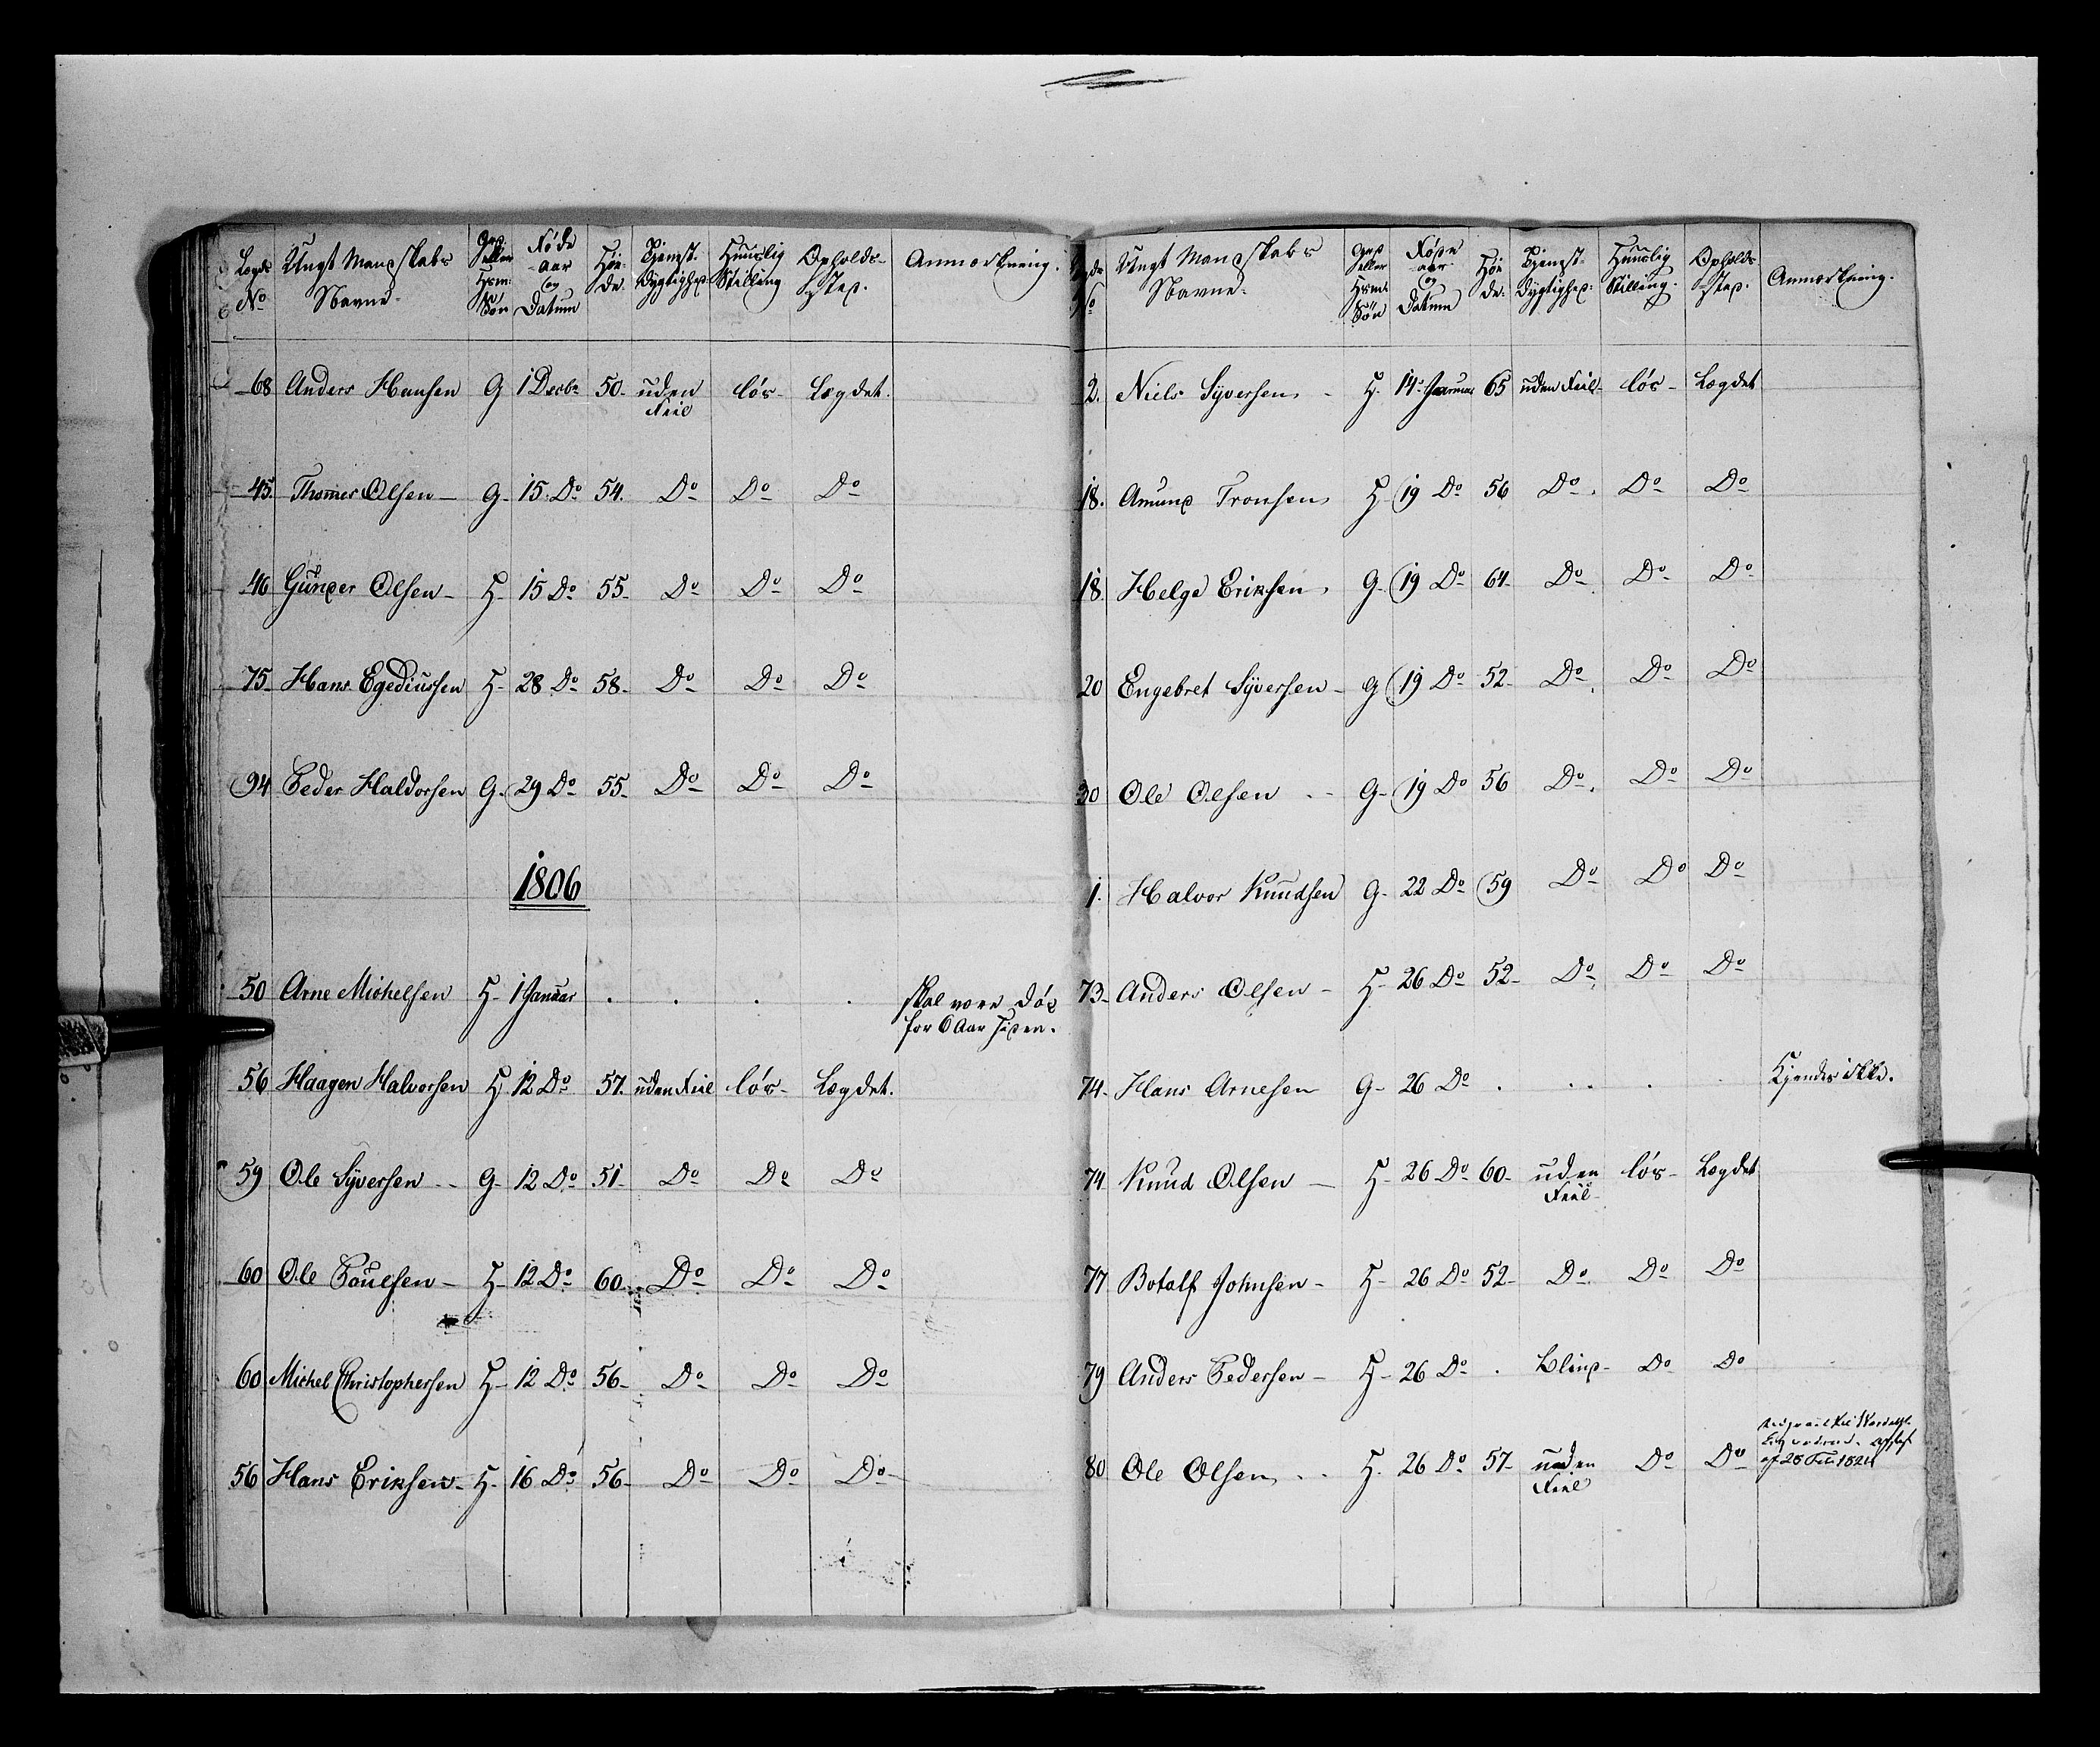 Lægds No | Ungt Mandskabs Navne | Grd. eller Huusm: Søn | Føde aar og Datum | Høi de | Tjenest Dygtighed | Huuslig Stilling | Opholds sted. | Anmærkning.
68 Anders Hansen G 1 Decbr 50. uden Feil løs Lægdet.
45. Thomes Olsen G 15. Do 54. Do Do Do
46 Gunder Olsen H 15 Do 55 Do Do Do
75 Hans Egediussen H 28 Do 58 Do Do Do
94 Peder Haldorsen G 29 Do 55 Do Do Do
1806
50 Arne Michelsen H 1 Januar . . . . skal være død for 6 Aar siden.
56 Haagen Halvorsen H 12 Do 57. uden Feil løs Lægdet.
59 Ole Syversen G 12 Do 51 Do Do Do
60 Ole Poulsen H 12 Do 60 Do Do Do
60 Michel Christophersen H 12 Do 56 Do Do Do
56 Hans Eriksen H 16 Do 56 Do Do Do
No | Ungt Mandskabs Navne | Grd eller Huusm: Søn | Føde aar og Datum | Høi de | Tjenest Dygtighed | Huuslig Stilling | Opholds sted. | Anmærkning.
2. Niels Syversen H 14 Januar 65 uden Feil løs Lægdet
18. Amund Tronsen H 19 Do 56 Do Do Do
18. Helge Eriksen G 19 Do 64 Do Do Do
20 Engebret Syversen G 19 Do 52 Do Do Do
30 Ole Olsen G 19 Do 56 Do Do Do
1. Halvor Knudsen G 22 Do 59 Do Do Do
73 Anders Olsen H 26 Do 52 Do Do Do
74. Hans Arnesen G 26 Do . . . . Kjendes ikke.
74 Knud Olsen H 26 Do 60 uden Feil løs Lægdet
77 Botolf Johnsen H 26 Do 52 Do Do Do
79 Anders Pedersen H 26 Do . Blind Do Do
80 Ole Olsen H 26 Do 57 uden Feil Do Do